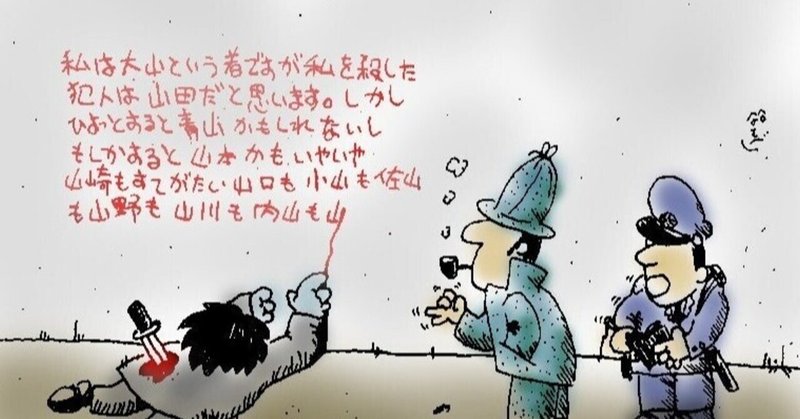 私は大山という者ですが私を殺した
犯人は山田だと思います。しかし
ひょっとすると青山かもしれないし
もしかすると山本かもいやいや
山崎もすてがたい山口も小山も佐山
も山野も山川も内山も山